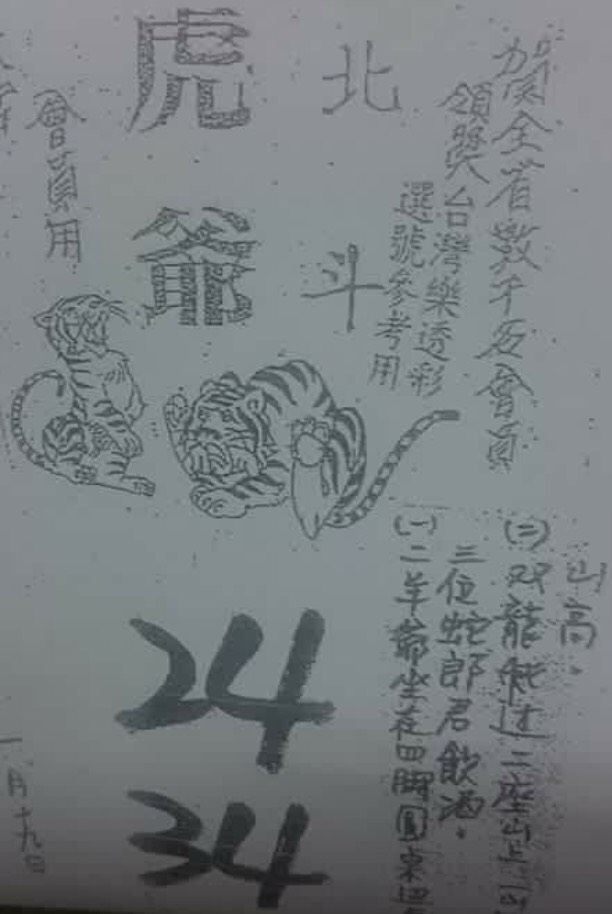 賀全省數千名會員
領獎台灣樂透彩
選號參考用
北斗
虎爺
會員用
山高。
(二)双龍飛过二座山
三位蛇郎君飲酒。
(一)二羊爺坐在四腳圓桌
24
34
一月十九日